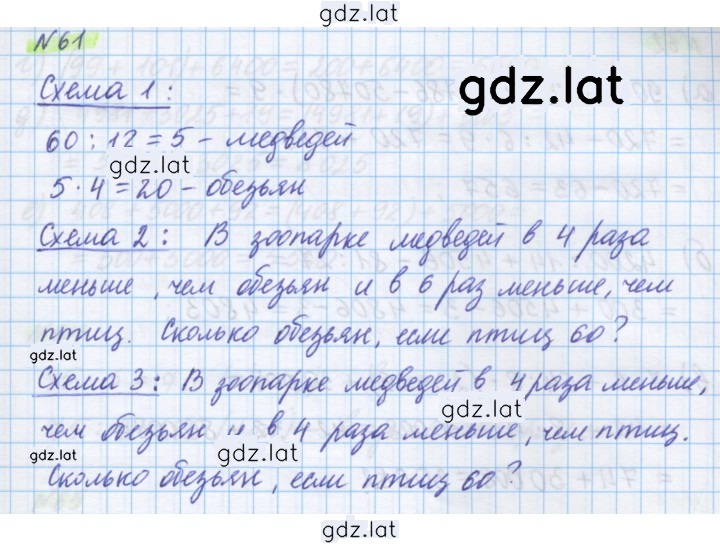 gdz.lat
№61
gdz.lat
Схема 1:
60 : 12 = 5 – медведей
gdz.lat
5 · 4 = 20 – обезьян
Схема 2: В зоопарке медведей в 4 раза
меньше, чем обезьян и в 6 раз меньше, чем
птиц. Сколько обезьян, если птиц 60?
gdz.lat
Схема 3: В зоопарке медведей в 4 раза меньше,
gdz.lat
чем обезьян и в 4 раза меньше, чем птиц.
gdz.lat
gdz.lat
Сколько обезьян, если птиц 60?
gdz.lat